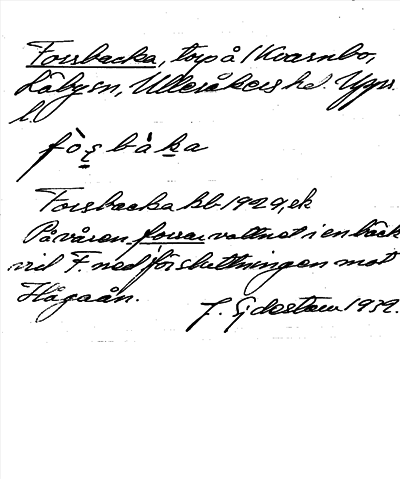 Forsbacka, torp å 1 Kvarnbo,
Läby sn, Ulleråkers hd. Upps.
l.
fòṣbàka
Forsbacka hb 1929, ek
På våren forsar vattnet i en bäck
vid F. nedför sluttningen mot
Hågaån.
J. Sjöström 1939.